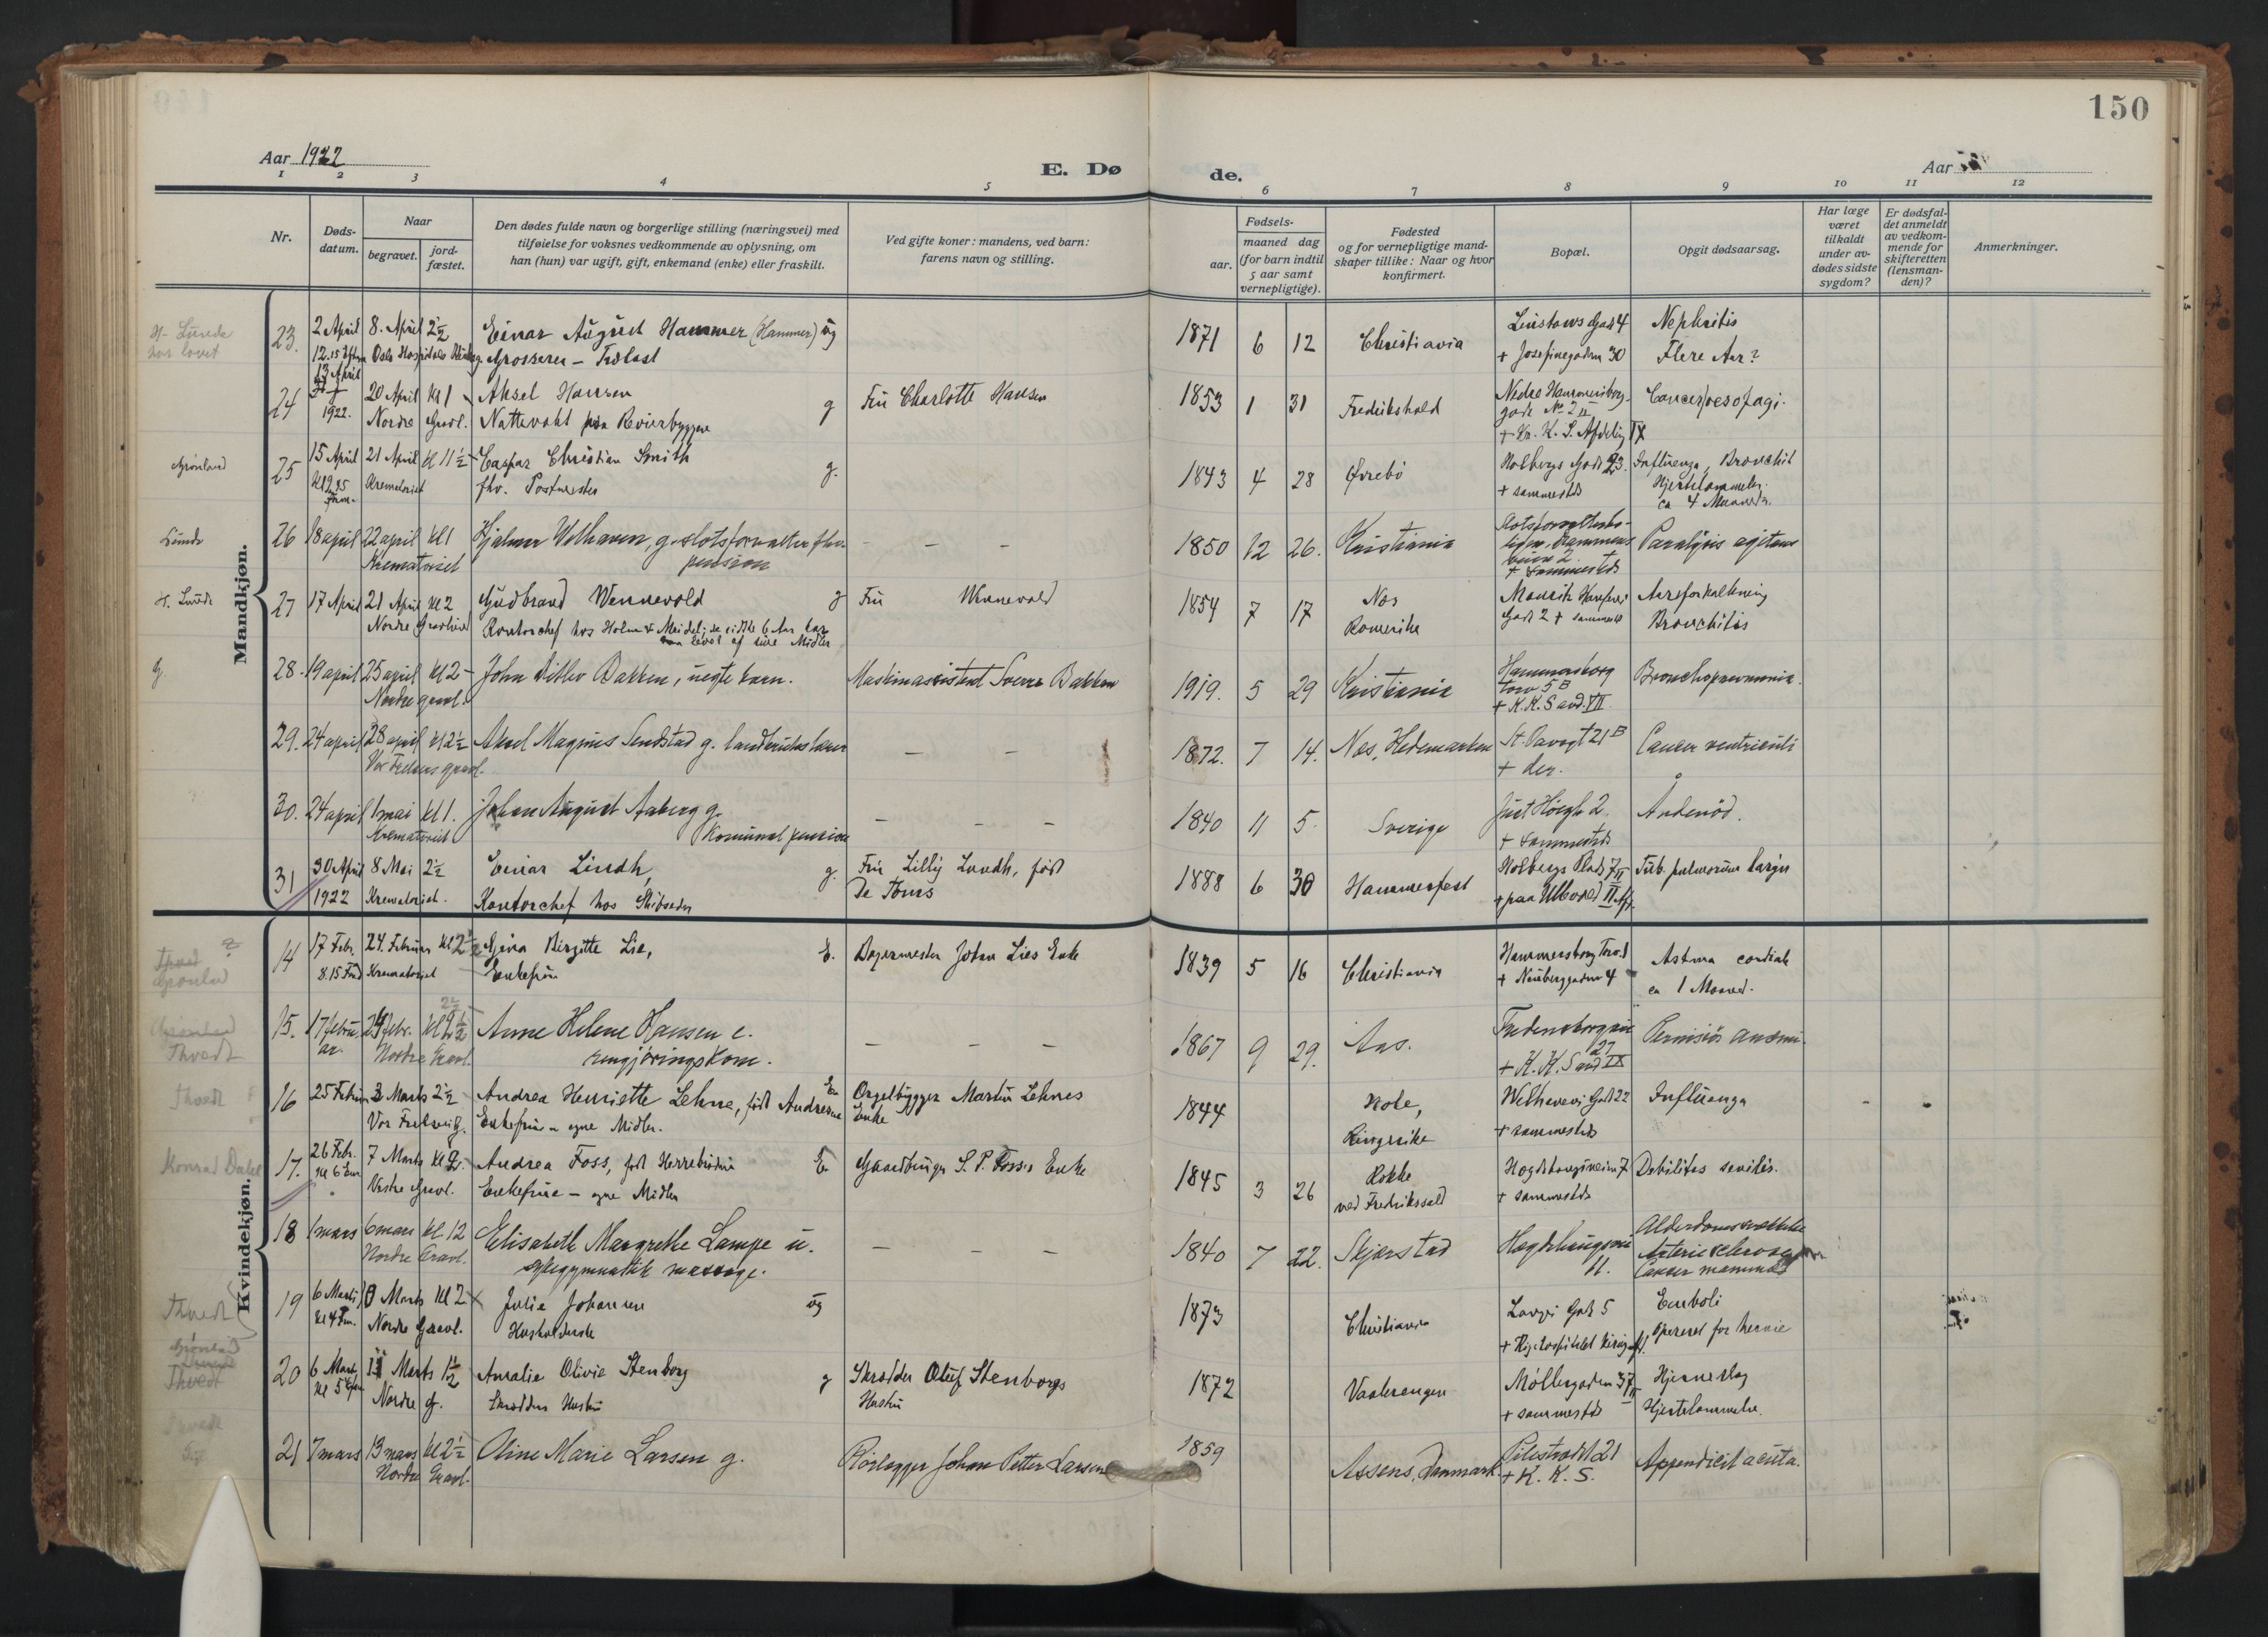 150
Aar 1922
E. Dø de.
Aar
1 2 3 4 5 6 7 8 9 10 11 12
Nr.
Døds-
datum.
Naar
begravet.
jord-
fæstet.
Den dødes fulde navn og borgerlige stilling (næringsvei) med
tilføielse for voksnes vedkommende av oplysning, om
han (hun) var ugift, gift, enkemand (enke) eller fraskilt.
Ved gifte koner: mandens, ved barn:
farens navn og stilling.
Fødsels-
aar.
maaned dag
(for barn indtil
5 aar samt
vernepligtige).
Fødested
og for vernepligtige mand-
skaper tillike: Naar og hvor
konfirmert.
Bopæl.
Opgit dødsaarsag.
Har læge
været
tilkaldt
under av-
dødes sidste
sygdom?
Er dødsfal-
det anmeldt
av vedkom-
mende for
skifteretten
(lensman-
den)?
Anmerkninger.
Mandkjøn.
23. 2 April 8. April 2½ Einar August Hammer (Hammer) ug 1871 6 12 Christiania Linstows Gade 4 Nephritis
12.15 Oslo Hospitals Grosserer - Trælast + Josefinegaden 30 Flere Aar?
24 13 April 20 April Kl 1 Aksel Hansen g Fru Charlotte Hansen 1853 1 31 Fredrikshald Nedre Hammersborg- Cancer oesofagi.
1922. Nordre Gravl. Nattevakt gade No 2 II
+ Kr. K. S. Afdeling IX
Grønland 25 15 April 21 April kl 11½ Caspar Christian Smith g. 1843 4 28 Øvrebö Holbergs Gade 23. Influenza, Bronchit
Krematoriet fhv. Postmester + sammesteds Hjertelammelse.
ca 4 Maaneder.
Lunde 26 18 april 22 april kl 1 Hjalmar Welhaven, g. slotsforvalter fhv. — — — 1850 12 26. Kristiania Paralysis agitans
Krematoriet pension + sammesteds
H. Lunde 27 17 April 21 April Kl 2 Gudbrand Wennevold g Fru Wennevold 1854 7 17 Nes Mouritz Hansens Aareforkalkning
Nordre Gravlund Kontorchef hos Holm & Meidel, de sidste 6 Aar har Romerike Gade 2 + sammest Bronchitis
levet af sine Midler
28. 19 april 25 april kl 2 John Ditlev Bakken, uegte barn. Maskinassistent Sverre Bakken 1919. 5 29 Kristiania Hammersborg Bronchopneumonie.
Nordre gravl. torv 5 B
+ K.K.S avd. VII.
29. 24 april 28 april kl 2½ Aksel Magnus Sendstad g. — — 1872. 7 14. Nes, Hedemarken St. Olavsgt 21 B Cancer ventriculi
Vor Frelsers gravl. + der.
30. 24 april 1 mai kl 1. Johan August Aaberg g. — — — 1840 11 5. Sverige Just Höegh 2. Åndenöd.
Krematoriet Komunal pension + sammesteds
31 30 April 8 Mai 2½ Einar Lindh, g. Fru Lilly Lundh, født 1888 6 30 Hammerfest Holbergs Plads 7 II Tub. pulmorum larynx
1922 Krematoriet. Kontorchef hos Skibsreder De Tonis + paa Ullevaal II Afd.
Kvindekjøn.
14 17 Feb. 24. Februar Kl 2½ Gina Birgitte Lie, E. Bagermester Johan Lies Enke 1839 5 16 Christiania Hammersborg Torv 1 Astma cordiale
8.15 Krematoriet Enkefru + Neubergsgaden 4 ca 1 Maaned.
Thvedt 15. 17 februar. 24 febr. kl 2½ Anne Helene Hansen e. — — — 1867 9 29. Aas. Fredensborgvei Pernisiös anæmi.
Nordre Gravl. rengjöringskone. 27 + K. K. S avd IX
Thvedt 16 25 Februar 3 Marts 2½ Andrea Henriette Lehne, født Andresen En Orgelbygger Martin Lehnes 1844 Hole, Welhavens Gade 22 Influenza
Vor Frelsers g. Enkefru - egne Midler. Enke Ringerike + sammesteds
Konrad Dahl 17. 26 Febr. 7 Marts Kl 2. Andrea Foss, født Herrebröden E. Gaardbruger S. P. Foss's Enke 1845 3 26 Rokke Hegdehaugsveien 7 Debilitas senilis.
kl 6 Em Vestre Gravl. Enkefrue - egne Midler ved Fredrikshald + sammesteds
18 1 mars 6 mars kl 12 Elisabeth Margrethe Lampe u. — — — 1840 7 22. Skjerstad Hegdehaugsvei Alderdomssvakhet
Nordre Gravl. sykegymnastik massage. 11. Arteriosclerose
Cancer mammae
Thvedt 19 6 Marts 10 Marts kl 2 Julie Johansen ug 1873 Christiania Lovers Gade 5 Emboli
kl 4 Fm. Nordre Gravl. Husholderske + Rigshospitalet opereret for hernie
Grønland
Thvedt 20 6 Marts 11 Marts 1½ Amalie Olivie Stenborg g Skrædder Oluf Stenborgs 1872 Vaalerengen Møllergaden 37 II Hjerneslag
Kl 5 Nordre g. Skrædders Hustru Hustru + sammesteds Hjertelammelse.
21 7 mars 13 mars kl 2½ Oline Marie Larsen g. Rörlegger Johan Petter Larsen 1859 Assens, Danmark. Pilestrædet 21 Appendicit acuta.
Nordre Gravl. + K. K. S.